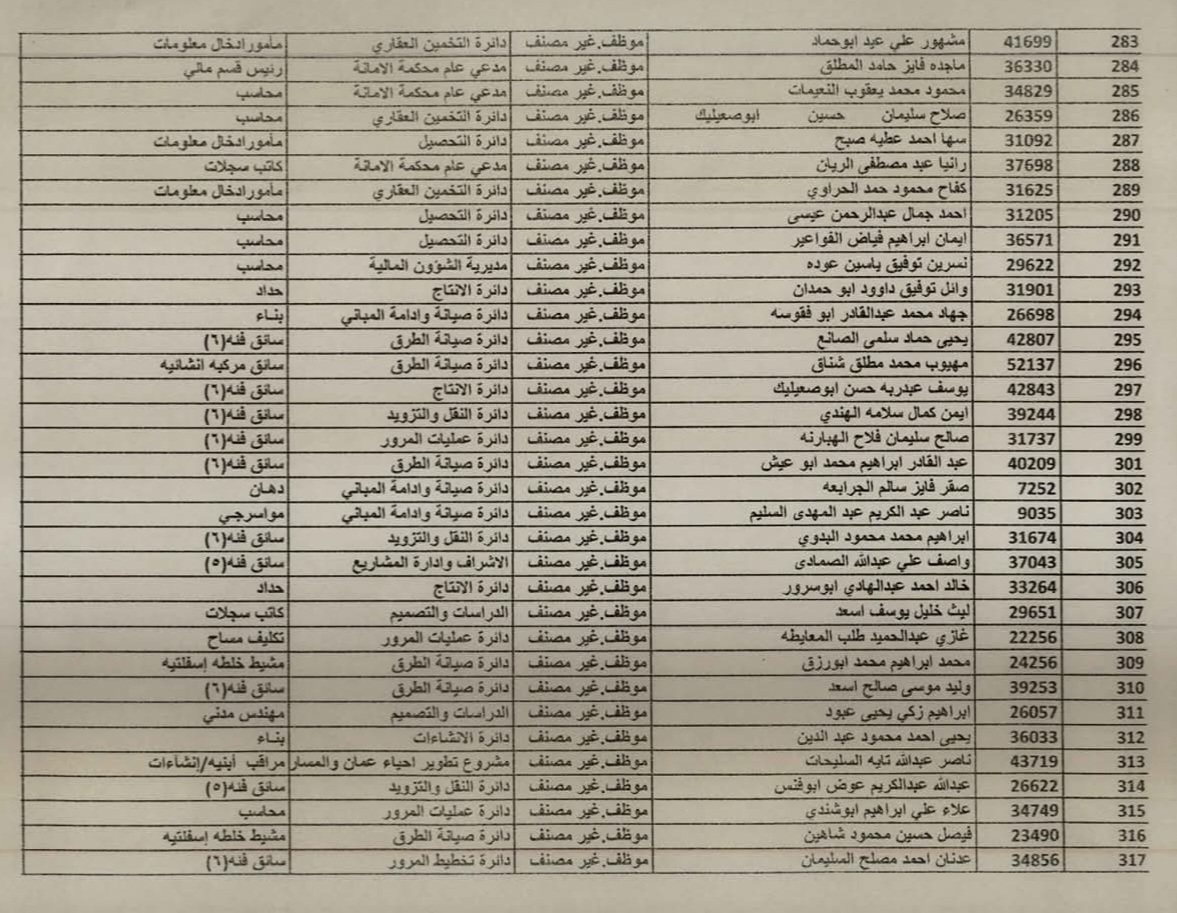 283 41699 مشهور علي عيد ابوحماد موظف.غير مصنف دائرة التخمين العقاري مأمور ادخال معلومات
284 36330 ماجده فايز حامد المطلق موظف.غير مصنف مدعي عام محكمة الامانة رئيس قسم مالي
285 34829 محمود محمد يعقوب النعيمات موظف.غير مصنف مدعي عام محكمة الامانة محاسب
286 26359 صلاح سليمان حسين ابوصعيليك موظف.غير مصنف دائرة التخمين العقاري محاسب
287 31092 سها احمد عطيه صبح موظف.غير مصنف دائرة التحصيل مأمور ادخال معلومات
288 37698 رانيا عبد مصطفى الريان موظف.غير مصنف مدعي عام محكمة الامانة كاتب سجلات
289 31625 كفاح محمود حمد الحراوي موظف.غير مصنف دائرة التخمين العقاري مأمور ادخال معلومات
290 31205 احمد جمال عبدالرحمن عيسى موظف.غير مصنف دائرة التحصيل محاسب
291 36571 ايمان ابراهيم فياض الفواعير موظف.غير مصنف دائرة التحصيل محاسب
292 29622 نسرين توفيق ياسين عوده موظف.غير مصنف مديرية الشؤون المالية محاسب
293 31901 وائل توفيق داوود ابو حمدان موظف.غير مصنف دائرة الانتاج حداد
294 26698 جهاد محمد عبدالقادر ابو فقوسه موظف.غير مصنف دائرة صيانة وادامة المباني بناء
295 42807 يحيى حماد سلمى الصانع موظف.غير مصنف دائرة صيانة الطرق سائق فئه(٦)
296 52137 مهيوب محمد مطلق شناق موظف.غير مصنف دائرة صيانة الطرق سائق مركبه انشائيه
297 42843 يوسف عبدربه حسن ابوصعيليك موظف.غير مصنف دائرة الانتاج سائق فئه(٦)
298 39244 ايمن كمال سلامه الهندي موظف.غير مصنف دائرة النقل والتزويد سائق فئه(٦)
299 31737 صالح سليمان فلاح الهبارنه موظف.غير مصنف دائرة عمليات المرور سائق فئه(٦)
301 40209 عبد القادر ابراهيم محمد ابو عيش موظف.غير مصنف دائرة صيانة الطرق سائق فئه(٦)
302 7252 صقر فايز سالم الجرابعه موظف.غير مصنف دائرة صيانة وادامة المباني دهان
303 9035 ناصر عبد الكريم عبد المهدى السليم موظف.غير مصنف دائرة صيانة وادامة المباني مواسرجي
304 31674 ابراهيم محمد محمود البدوي موظف.غير مصنف دائرة النقل والتزويد سائق فئه(٦)
305 37043 واصف علي عبدالله الصمادى موظف.غير مصنف الاشراف وادارة المشاريع سائق فئه(٥)
306 33264 خالد احمد عبدالهادي ابوسرور موظف.غير مصنف دائرة الانتاج حداد
307 29651 ليث خليل يوسف اسعد موظف.غير مصنف الدراسات والتصميم كاتب سجلات
308 22256 غازي عبدالحميد طلب المعايطه موظف.غير مصنف دائرة عمليات المرور تكليف مساح
309 24256 محمد ابراهيم محمد ابورزق موظف.غير مصنف دائرة صيانة الطرق مشيط خلطه إسفلتيه
310 39253 وليد موسى صالح اسعد موظف.غير مصنف دائرة صيانة الطرق سائق فئه(٦)
311 26057 ابراهيم زكي يحيى عبود موظف.غير مصنف الدراسات والتصميم مهندس مدني
312 36033 يحيى احمد محمود عبد الدين موظف.غير مصنف دائرة الانشاءات بناء
313 43719 ناصر عبدالله تايه السليحات موظف.غير مصنف مشروع تطوير احياء عمان والمسار مراقب أبنيه/إنشاءات
314 26622 عبدالله عبدالكريم عوض ابوفنس موظف.غير مصنف دائرة النقل والتزويد سائق فئه(٥)
315 34749 علاء علي ابراهيم ابوشندي موظف.غير مصنف دائرة عمليات المرور محاسب
316 23490 فيصل حسين محمود شاهين موظف.غير مصنف دائرة صيانة الطرق مشيط خلطه إسفلتيه
317 34856 عدنان احمد مصلح السليمان موظف.غير مصنف دائرة تخطيط المرور سائق فئه(٦)